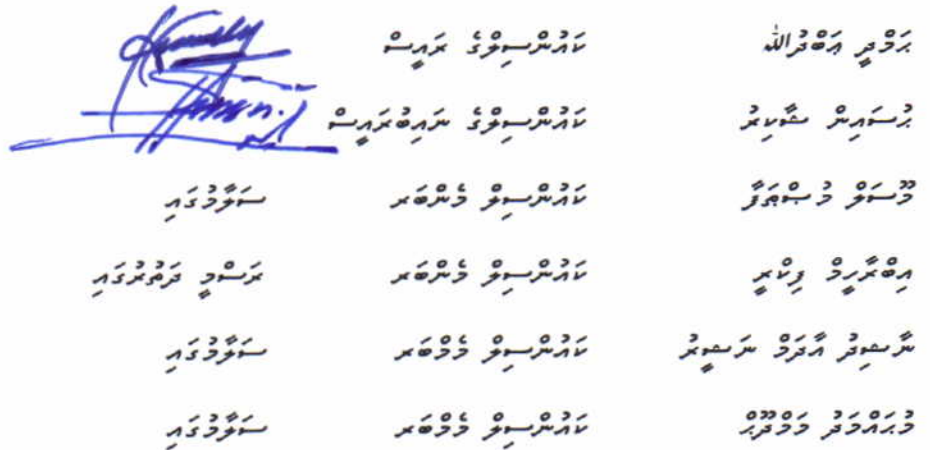 ޙަމްދީ ޢަބްދުﷲ ކައުންސިލްގެ ރައީސް
ޙުސައިން ޝާކިރު ކައުންސިލްގެ ނައިބުރައީސް
މޫސަލް މުޞްޠަފާ ކައުންސިލް މެންބަރ ސަލާމުގައި
އިބްރާހީމް ފިކްރީ ކައުންސިލް މެންބަރ ރަސްމީ ދަތުރުގައި
ނާޝިދު އާދަމް ނަޝީރު ކައުންސިލް މެމްބަރ ސަލާމުގައި
މުޙައްމަދު މަމްދޫޙް ކައުންސިލް މެމްބަރ ސަލާމުގައި